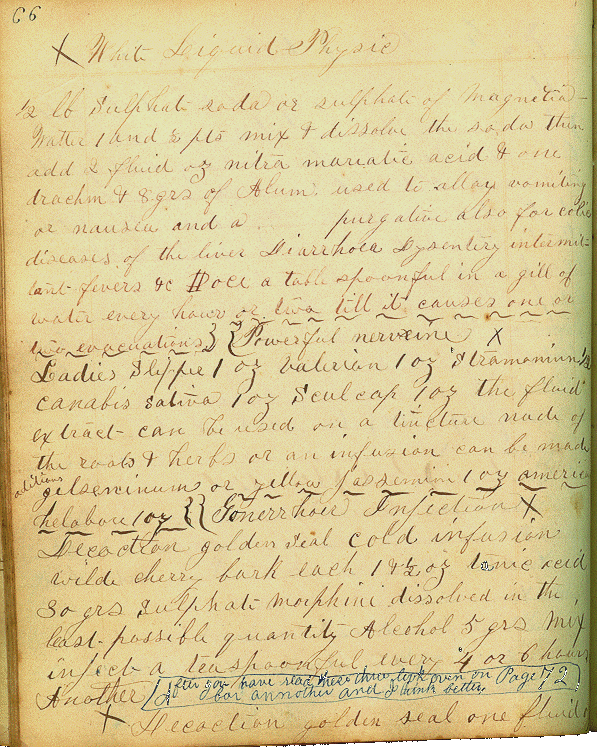 66
X White Liquid Physic
1/2 lb Sulphate soda or sulphate of magnetia
Watter 1 and 2 pts mix & dissolve the soda then
add 2 fluid oz nitra mariatic acid & one
drachm & 8 grs of Alum used to allay vomiting
or nausea and a .... purgative also for colic
diseases of the liver Diarrhoea Dysentery intermit-
tant fevers &c Dose a table spoonful in a gill of
water every hour or two till it causes one or
two evacuations }{ Powerful nerveine X
Ladies Slipper 1 oz Valerian 1 oz Stramonium
canabis sativa 1 oz Sculcap 1 oz the fluid
extract can be used on a tincture made of
the roots & herbs or an infusion can be made
aditions gelseminum or yellow jassemin 1 oz american
helabore 1 oz }{ Gonerrhoie Injection X
Decoction golden seal cold infusion
wilde cherry bark each 1 & 1/2 oz tonic acid
30 grs Sulphate morphini dissolved in the
least possible quantity Alcohol 5 grs mix
inject a teaspoonful every 4 or 6 hours
Another (After you have read these three look over on Page 72
for annother and I think better
X Decoction golden seal one fluid